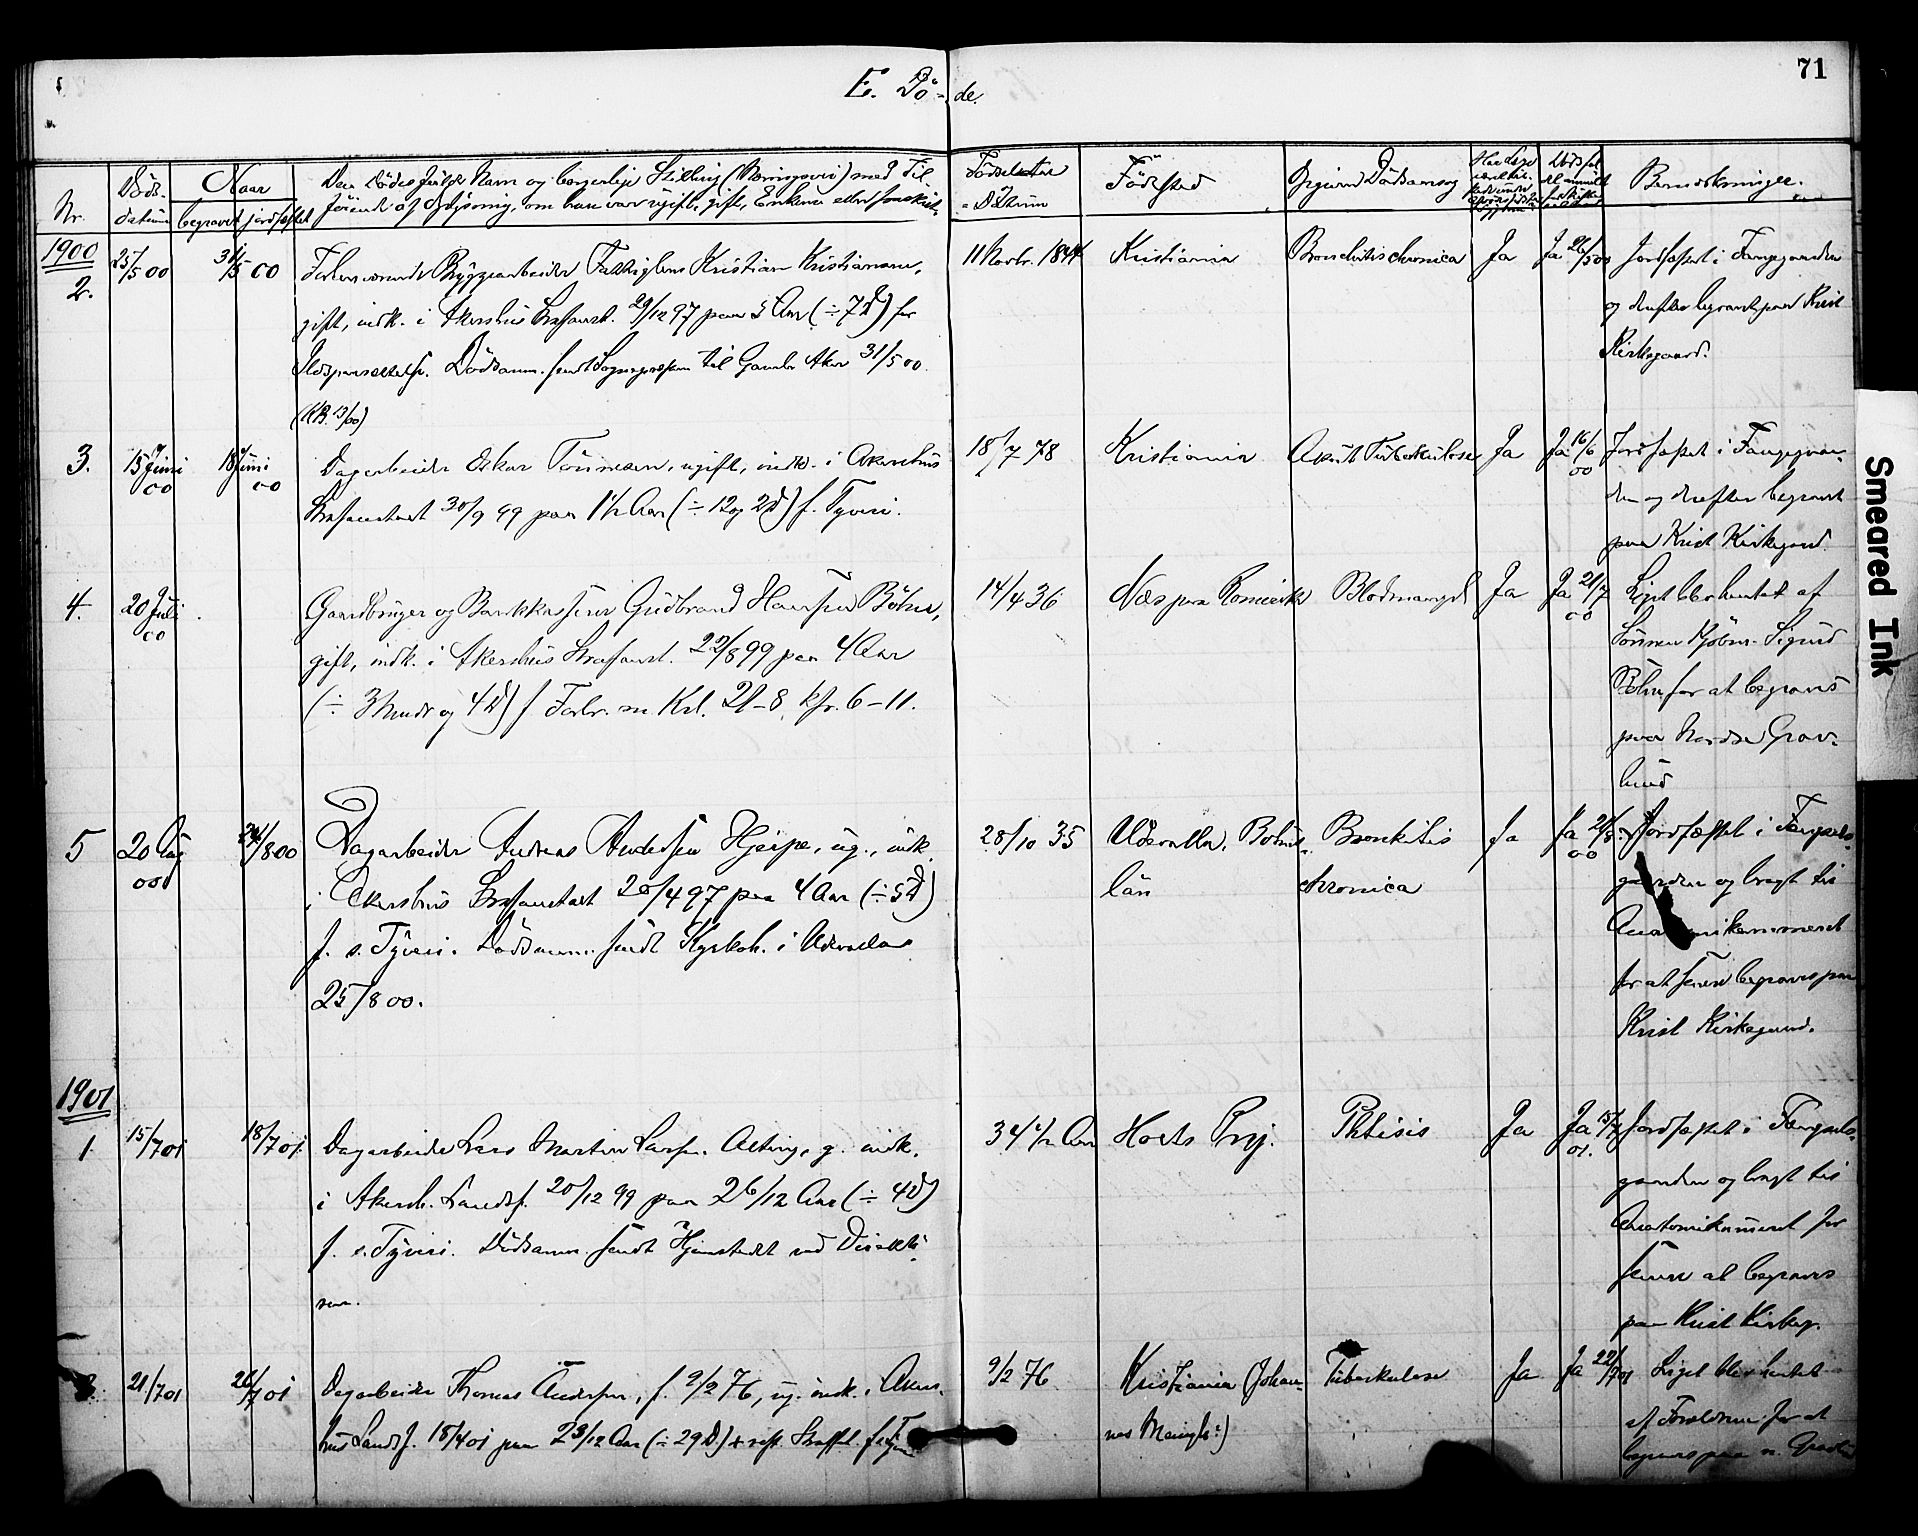 71
E. Dö- de.
Nr.
Döds- datum
Naar
begravet
jordfæstet
Den Dödes fulde Navn og borgerlige Stilling (Næringsvei) med Til
föiende af Oplysning, om han var ugift, gift, Enkem. eller fraskilt
Födsels
Datum
Födested
Opgiven Dödsaarsag
Bemærkninger.
1900
2.
25/5 00
31/5 00
Kristian Kristiansen,
gift, indk. i Akershus Strafanst. 29/12 97 paa 5 Aar (÷ 7 D) for
Dödsanm. sendt Sognepræsten til Gamle Aker 31/5 00.
(KB. 13/00)
11 Novbr. 1844
Kristiania
Bronchitis chronica
Ja
Ja 26/5 00
Jordfæstet i Fanggaarden
og derefter begravet paa Krist
Kirkegaard.
3.
15 Juni
00
18 Juni
00
Dagarbeider Oskar Tönnesen, ugift, indk. i Akershus
Strafanstalt 30/9 99 paa 1 1/2 Aar (÷ 12 og 2 D) f. Tyveri.
18/7 78
Kristiania
Akut Tuberkulose
Ja
Ja 16/6
00
Jordfæstet i Fanggaar-
den og derefter begravet
paa Krist Kirkegaard.
4.
20 Juli
00
Gaardbruger og Bankkasserer Gudbrand Hansen Böhn,
gift, indk. i Akershus Strafanst. 22/8 99 paa 4 Aar
(÷ 3 Mndr og 4 D) f. Forbr. m. Krl. 21-8, kfr. 6-11.
14/4 36
Næs paa Romerike
Blodmangel
Ja
Ja 21/7
00
Liget blev hentet af
Sönnen Sigurd
Böhn for at begraves
paa Nordre Grav-
lund
5
20 Aug
00
24/8 00
Dagarbeider Andreas Andersen Hjerpe, ug., indk.
i Akershus Strafanstalt 20/4 97 paa 4 Aar (÷ 5 D)
f. s. Tyveri. Dödsanm. sendt Kyrkoh. i Udevalla
25/8 00.
28/10 35
Udevalla, Bohus-
län
Bronkitis
chronica
Ja
Ja 21/8
00
Jordfæstet i Fængsels-
gaarden og bragt til
Anatomikammeret
for at senere begraves paa
Krist Kirkegaard.
1901
1.
15/7 01
18/7 01
Dagarbeider Lars Martin Larsen Alting, g. indk.
i Akersh. Landsf. 20/12 99 paa 2 6/12 Aar (÷ 4 D)
f. s. Tyveri. Dödsanm. sendt Hjemstedet ved Direktö-
ren.
34 1/2 Aar
Holts Prgj.
Phtisis
Ja
Ja 15/7
01.
Jordfæstet i Fængsels-
gaarden og bragt til
Anatomikameret for
senere at begraves
paa Krist Kirkeg.
21/7 01
26/7 01
Dagarbeider Thomas Andersen, f. 9/2 76, ug. indk. i Akers-
hus Landsf. 18/4 01 paa 2 3/12 Aar (÷ 29 D)
9/2 76
Kristiania (Johan-
nes Menigh:)
Tuberkulose
Ja
Ja 22/7 01
Liget blev hentet
af Forældrene for at
begraves paa n. Gravlu
Smeared Ink